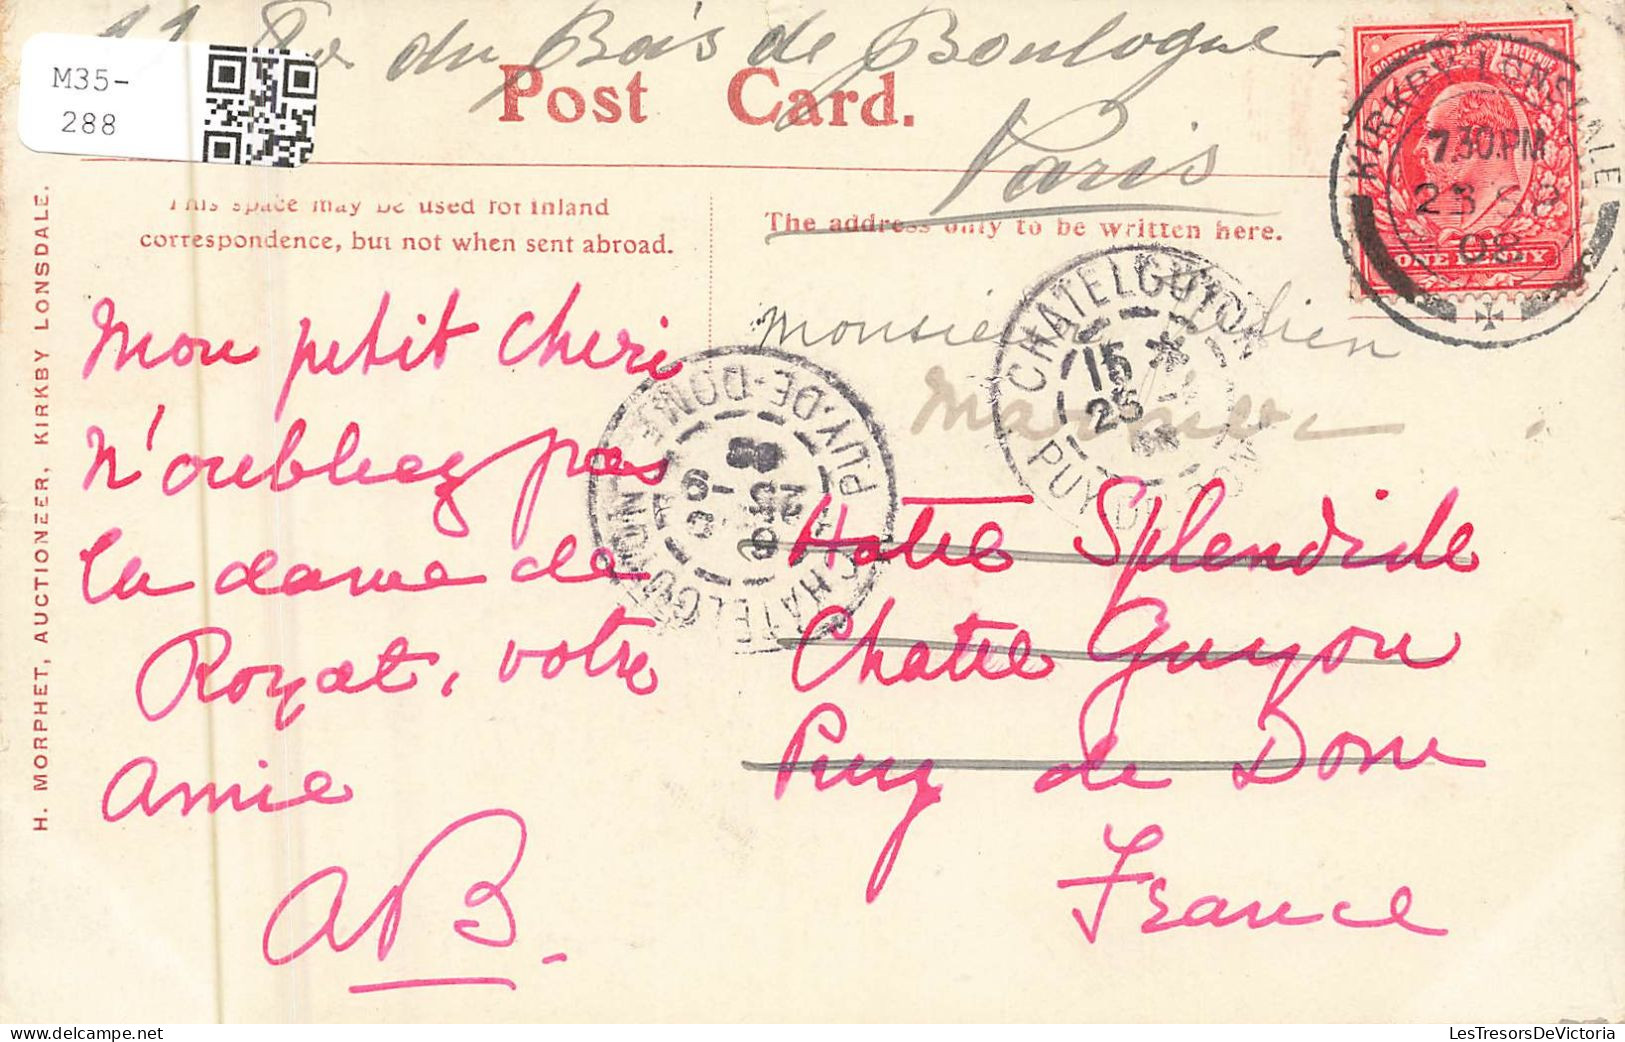 M35-
288
du Bois de Boulogne
Paris
Post Card.
This space may be used for Inland
correspondence, but not when sent abroad.
The address only to be written here.
H. MORPHET, AUCTIONEER, KIRKBY LONSDALE.
KIRKBY-LONSDALE
7.30.PM
08
ONE PENNY
CHATELGUYON
15
25
PUY-DE-DOME
CHATELGUYON
PUY-DE-DOME
Monsieur
Mon petit cheri
n'oubliez pas
la dame de
Royat, votre
amie
AB.
Splendide
Chatel Guyon
Puy de Dome
France
LesTresorsDeVictoria